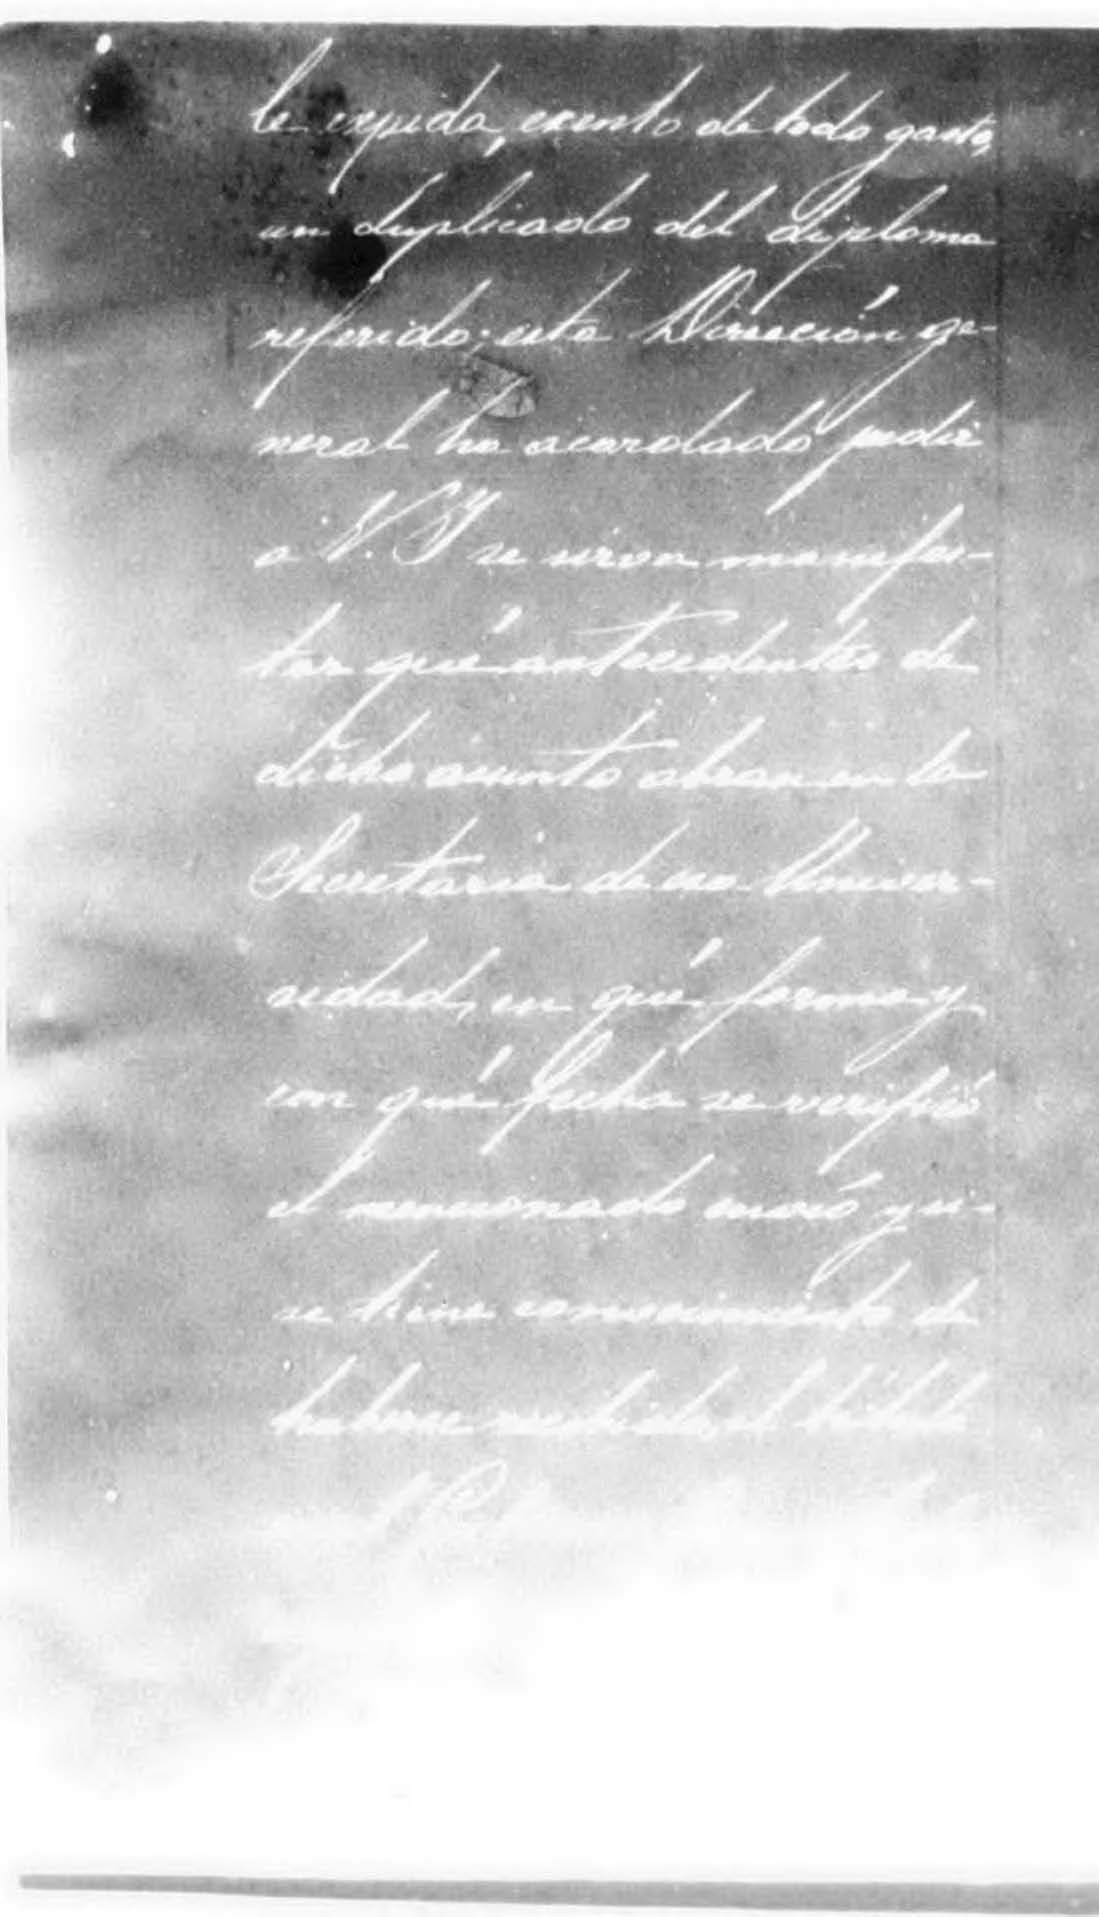 le expida, exento de todo gasto,
un duplicado del diploma
referido; esta Dirección ge-
neral ha acordado pedir
a V. I se sirva manifes-
tar qué antecedentes de
dicho asunto obran en la
Secretaria de esa Univer-
sidad, en qué forma y
con qué fecha se verificó
el mencionado envió y si
se tiene conocimiento de
haberse recibido el título